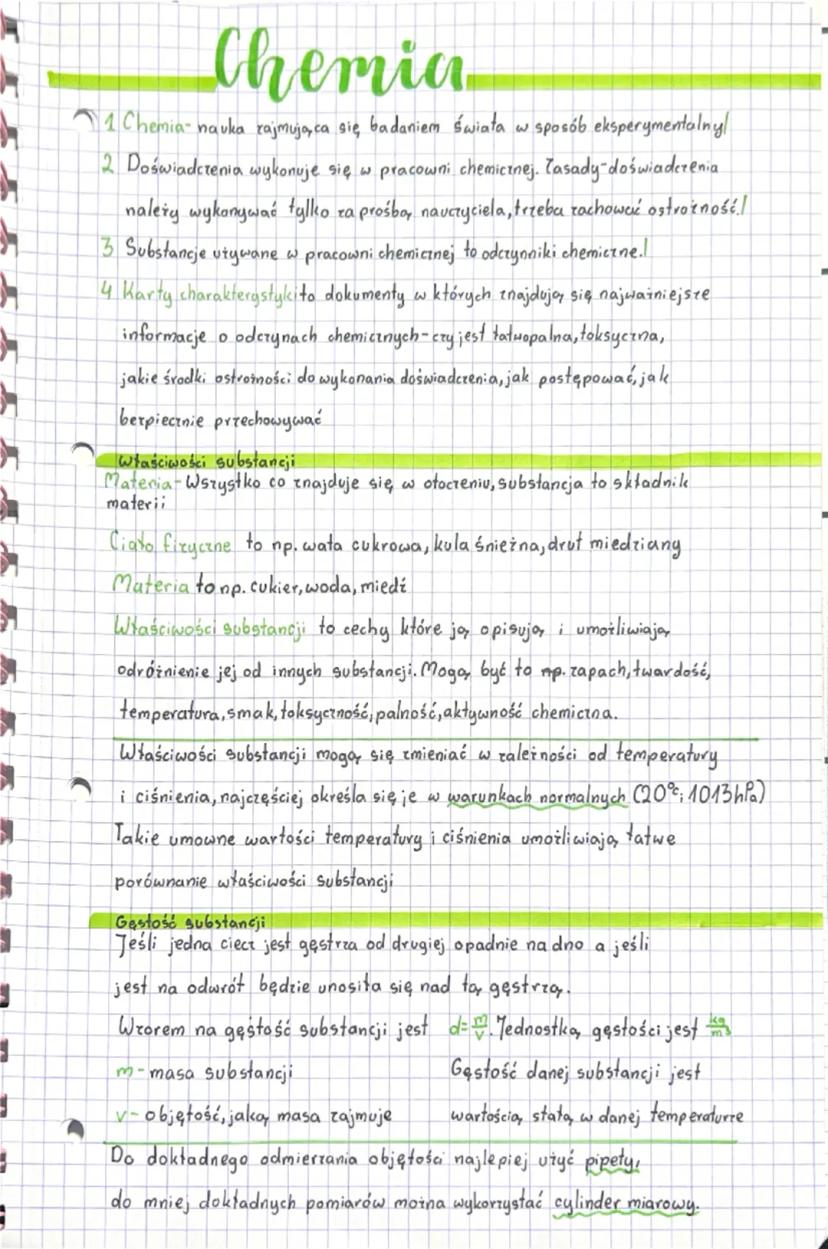 Chemia
1 Chemia- nauka zajmująca się badaniem świata w sposób eksperymentalny/
2 Doświadczenia wykonuje się w pracowni chemicznej. Zasady-doświadczenia
należy wykonywać tylko za prośbą nauczyciela, trzeba zachować ostrożność./
3 Substancje używane w pracowni chemicznej to odczynniki chemiczne./
4 Karty charakterystyki to dokumenty w których znajdują się najważniejsze
informacje o odczynach chemicznych-czy jest łatwopalna, toksyczna,
jakie środki ostrożności do wykonania doświadczenia, jak postępować, jak
bezpiecznie przechowywać
Właściwości substancji
Materia-Wszystko co znajduje się w otoczeniu, substancja to składnik
materii
Ciało fizyczne to np. wata cukrowa, kula śnieżna, drut miedziany
Materia to np. cukier, woda, miedź
Właściwości substancji to cechy które ją opisują i umożliwiają
odróżnienie jej od innych substancji. Mogą być to np. zapach, twardość,
temperatura, smak, toksyczność, palność, aktywność chemiczna.
Właściwości substancji mogą się zmieniać w zależności od temperatury
i ciśnienia, najczęściej określa się je w warunkach normalnych (20°C i 1013hPa)
Takie umowne wartości temperatury i ciśnienia umożliwiają łatwe
porównanie właściwości substancji
Gęstość substancji
Jeśli jedna ciecz jest gęstrza od drugiej opadnie na dno a jeśli
jest na odwrót będzie unosiła się nad tą gęstrzą.
Wzorem na gęstość substancji jest d=m/v. Jednostką gęstości jest kg/m³
m-masa substancji
v-objętość, jaką masa zajmuje
Gęstość danej substancji jest
wartością stałą w danej temperaturze
Do dokładnego odmierzania objętości najlepiej użyć pipety,
do mniej dokładnych pomiarów można wykorzystać cylinder miarowy.